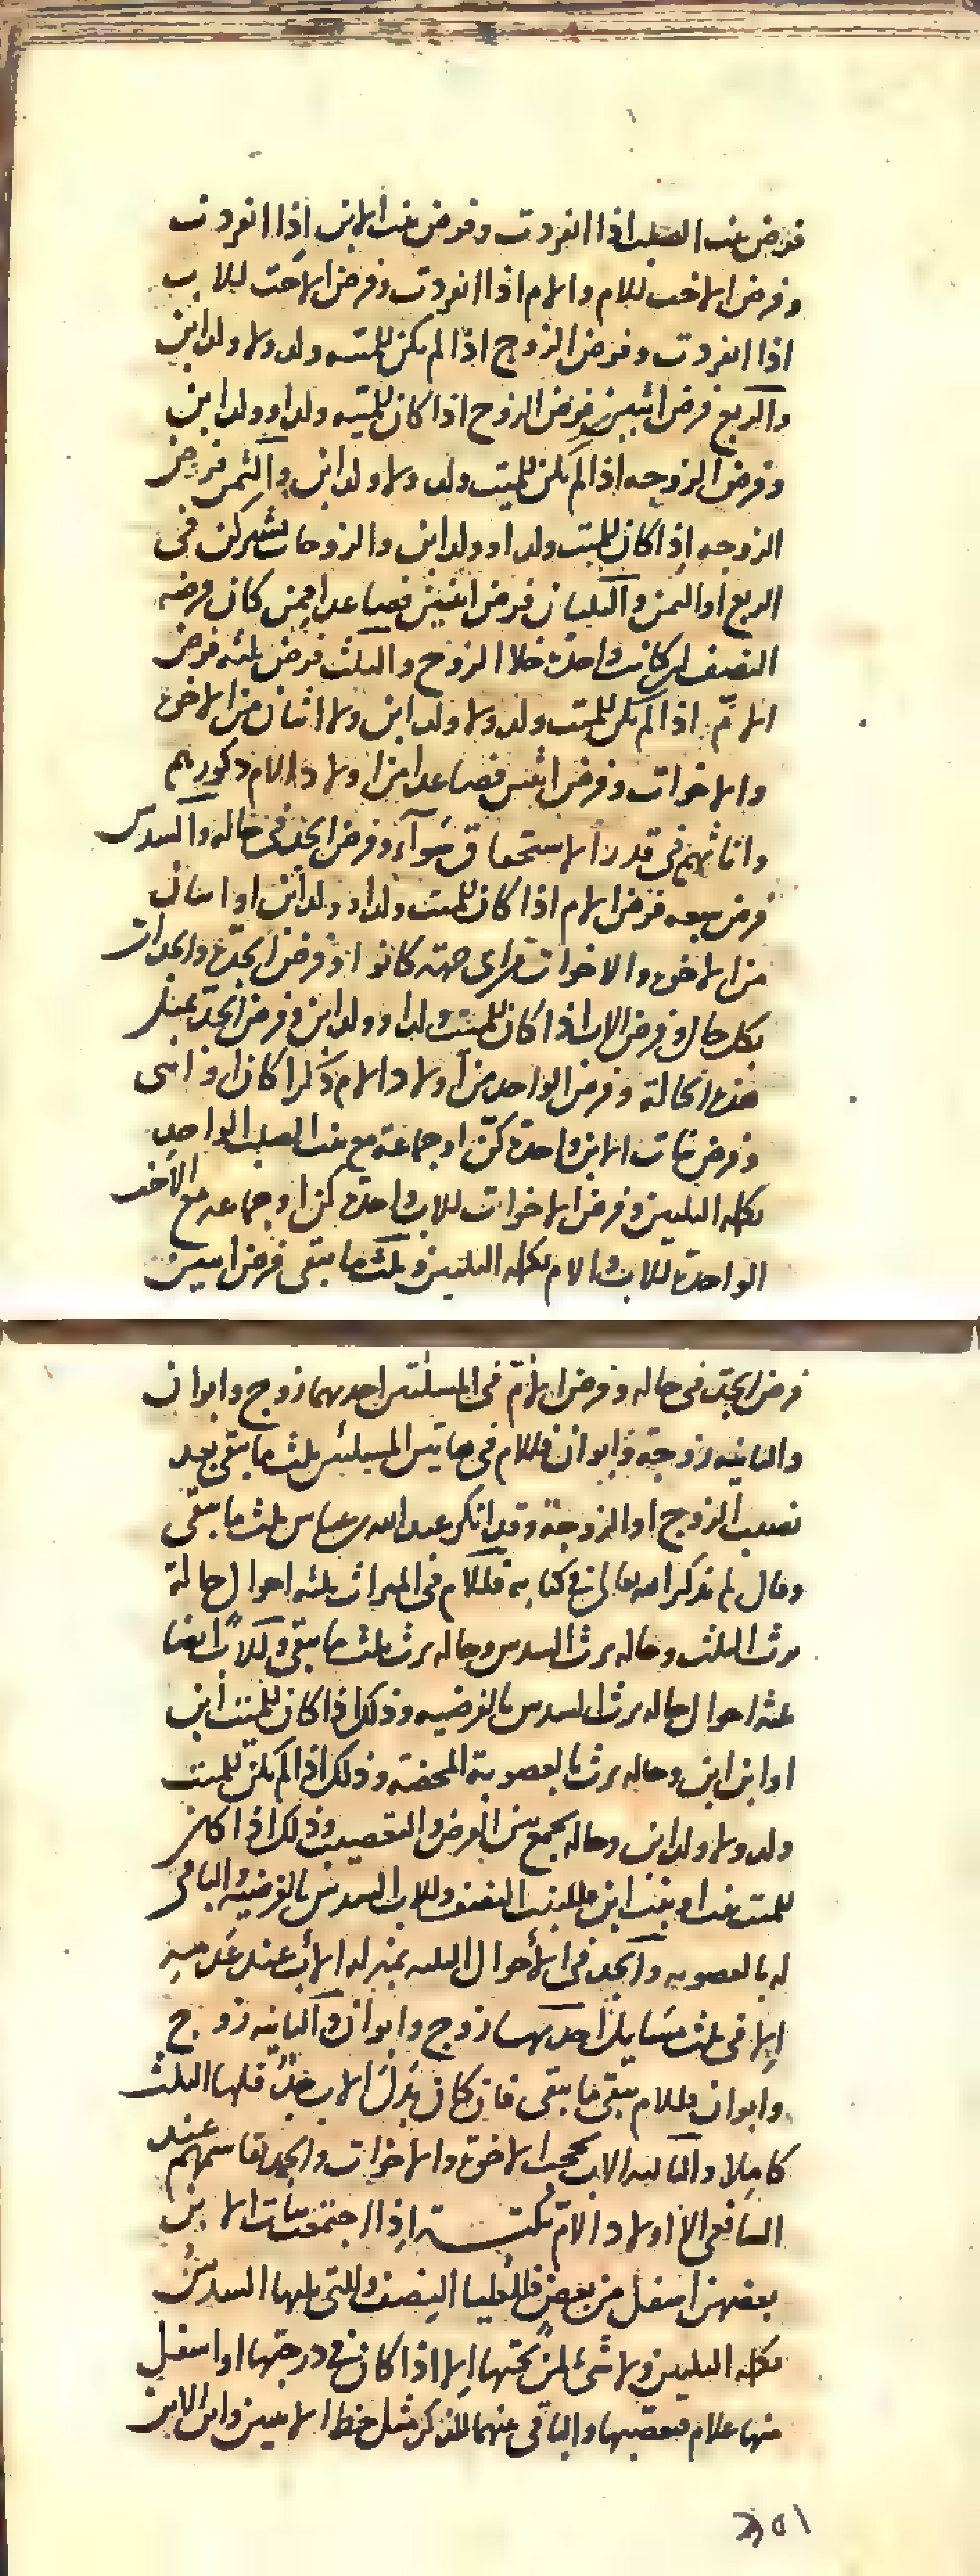 فرض بنت الصلب اذا انفردت وفرض بنت الابن اذا انفردت
وفرض الاخت للاب والام اذا انفردت وفرض الاخت للاب
اذا انفردت وفرض الزوج اذا لم يكن للميت ولد ولا ولد ابن
والربع فرض اثنين فرض الزوج اذا كان للميته ولد او ولد ابن
وفرض الزوجه اذا لم يكن للميت ولد ولا ولد ابن والثمن فرض
الزوجه اذا كان للميت ولد او ولد ابن والزوجات يشتركن في
الربع او الثمن والثلثان فرض اثنين فصاعدا ممن كان فرضه
النصف لو كانت واحدة خلا الزوج والثلث فرض ثلثه فرض
الام اذا لم يكن للميت ولد ولا ولد ابن ولا اثنان من الاخوة
والاخوات وفرض اثنين فصاعدا من اولاد الام ذكورهم
واناثهم في قدر الاستحقاق سوآء وفرض الجد في حاله والسدس
فرض سبعه فرض الام اذا كان للميت ولد او ولد ابن او اثنان
من الاخوة والاخوات من اي جهة كانوا وفرض الجدة والجدات
بكل حال وفرض الاب اذا كان للميت ولد او ولد ابن وفرض الجد بمثل
هذه الحالة وفرض الواحد من اولاد الام ذكرا كان او انثى
وفرض بنات الابن واحدة كن او جماعة مع بنت الصلب الواحدة
تكمله الثلثين وفرض الاخوات للاب واحدة كن او جماعه مع الاخت
الواحدة للاب والام تكمله الثلثين وثلث ما يبقى فرض اثنين
فرض الجد في حاله وفرض الام في المسئلتين احديهما زوج وابوان
والثانيه زوجة وابوان فللام في هاتين المسئلتين ثلث ما يبقى بعد
نصيب الزوج او الزوجة وقد انكر عبد الله بن عباس ثلث ما يبقى
وقال لم يذكر الله تعالى في كتابه فللام في الميراث ثلثه احوال حالة
ترث الثلث وحاله ترث السدس وحاله ترث ثلث ما يبقى وللاب ايضا
ثلثه احوال حاله يرث السدس بالفرضيه وذلك اذا كان للميت ابن
او ابن ابن وحاله يرث بالعصوبة المحضة وذلك اذا لم يكن للميت
ولد ولا ولد ابن وحاله يجمع بين الفرض والتعصيب وذلك اذا كان
للميت بنت او بنت ابن فللبنت النصف وللاب السدس بالفرضيه والباقي
له بالعصوبه والجد في الأحوال الثلثه بمنزله الأب عند عدمه
الا في ثلث مسايل احديها زوج وابوان والثانيه زوج
وابوان فللام يبقى ما يبقى فان كان بدل الاب جد فلها الثلث
كاملا والثالثه الاب يحجب الاخوة والاخوات والجد يقاسمهم عند
الشافعي الا اولاد الام نكتة اذا اجتمعت بنات الابن
بعضهن اسفل من بعض فللعليا النصف وللتي يليها السدس
تكمله الثلثين ولا شئ لمن تحتها الا اذا كان في درجتها او اسفل
منها غلام فيعصبها والباقي بينهما للذكر مثل حظ الانثيين وابن الابن